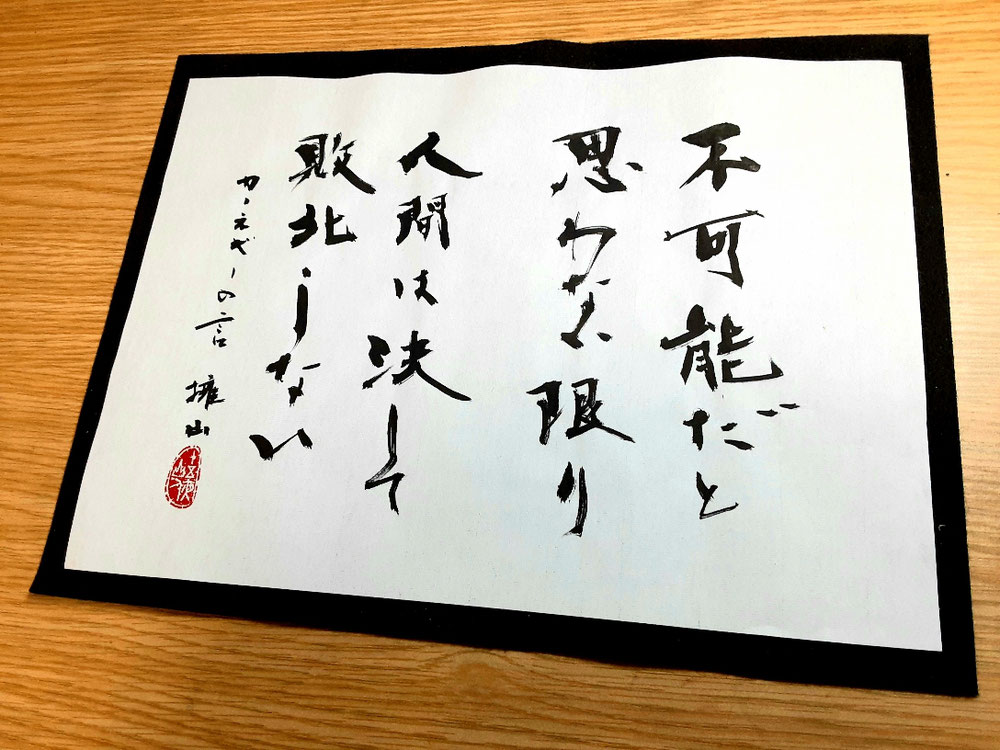 不可能だと
思わない限り
人間は決して
敗北しない
カーネギーの言 擁山